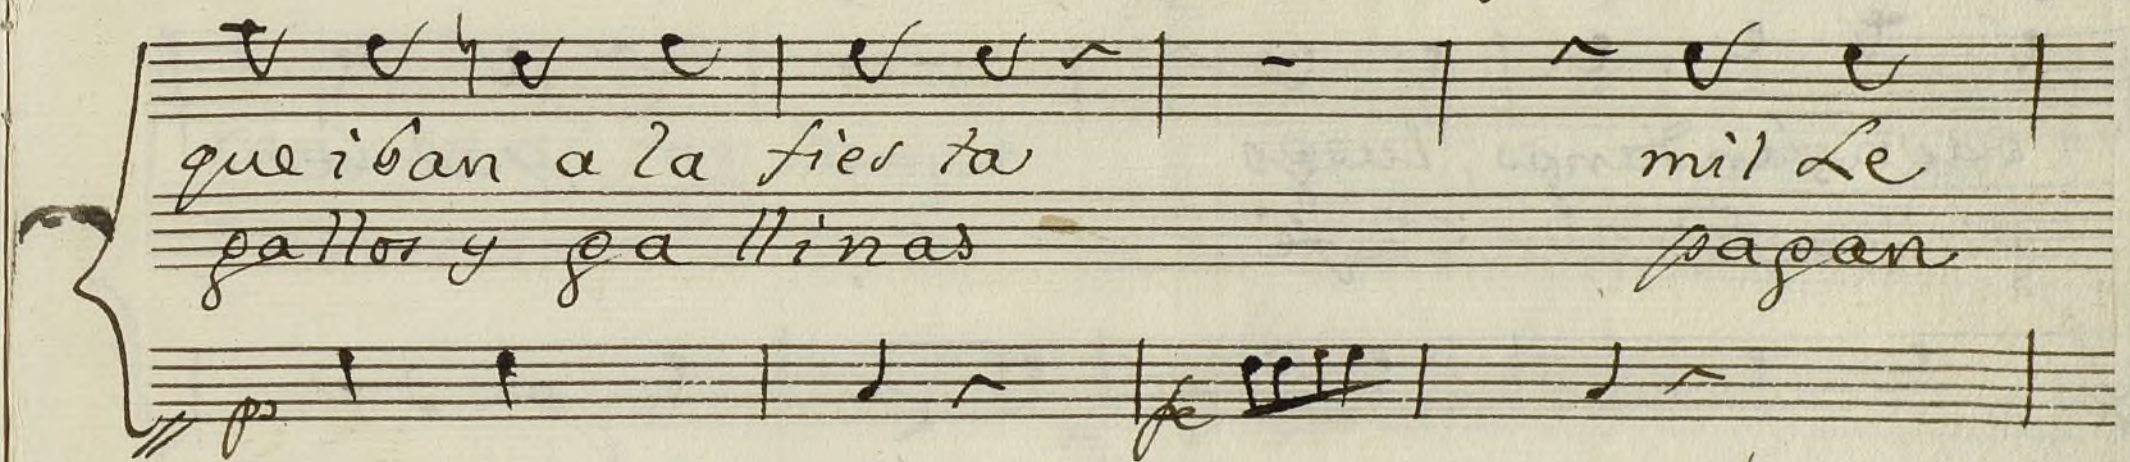 que iban a la fies ta mil Le
gallos y ga llinas pagan
po fe